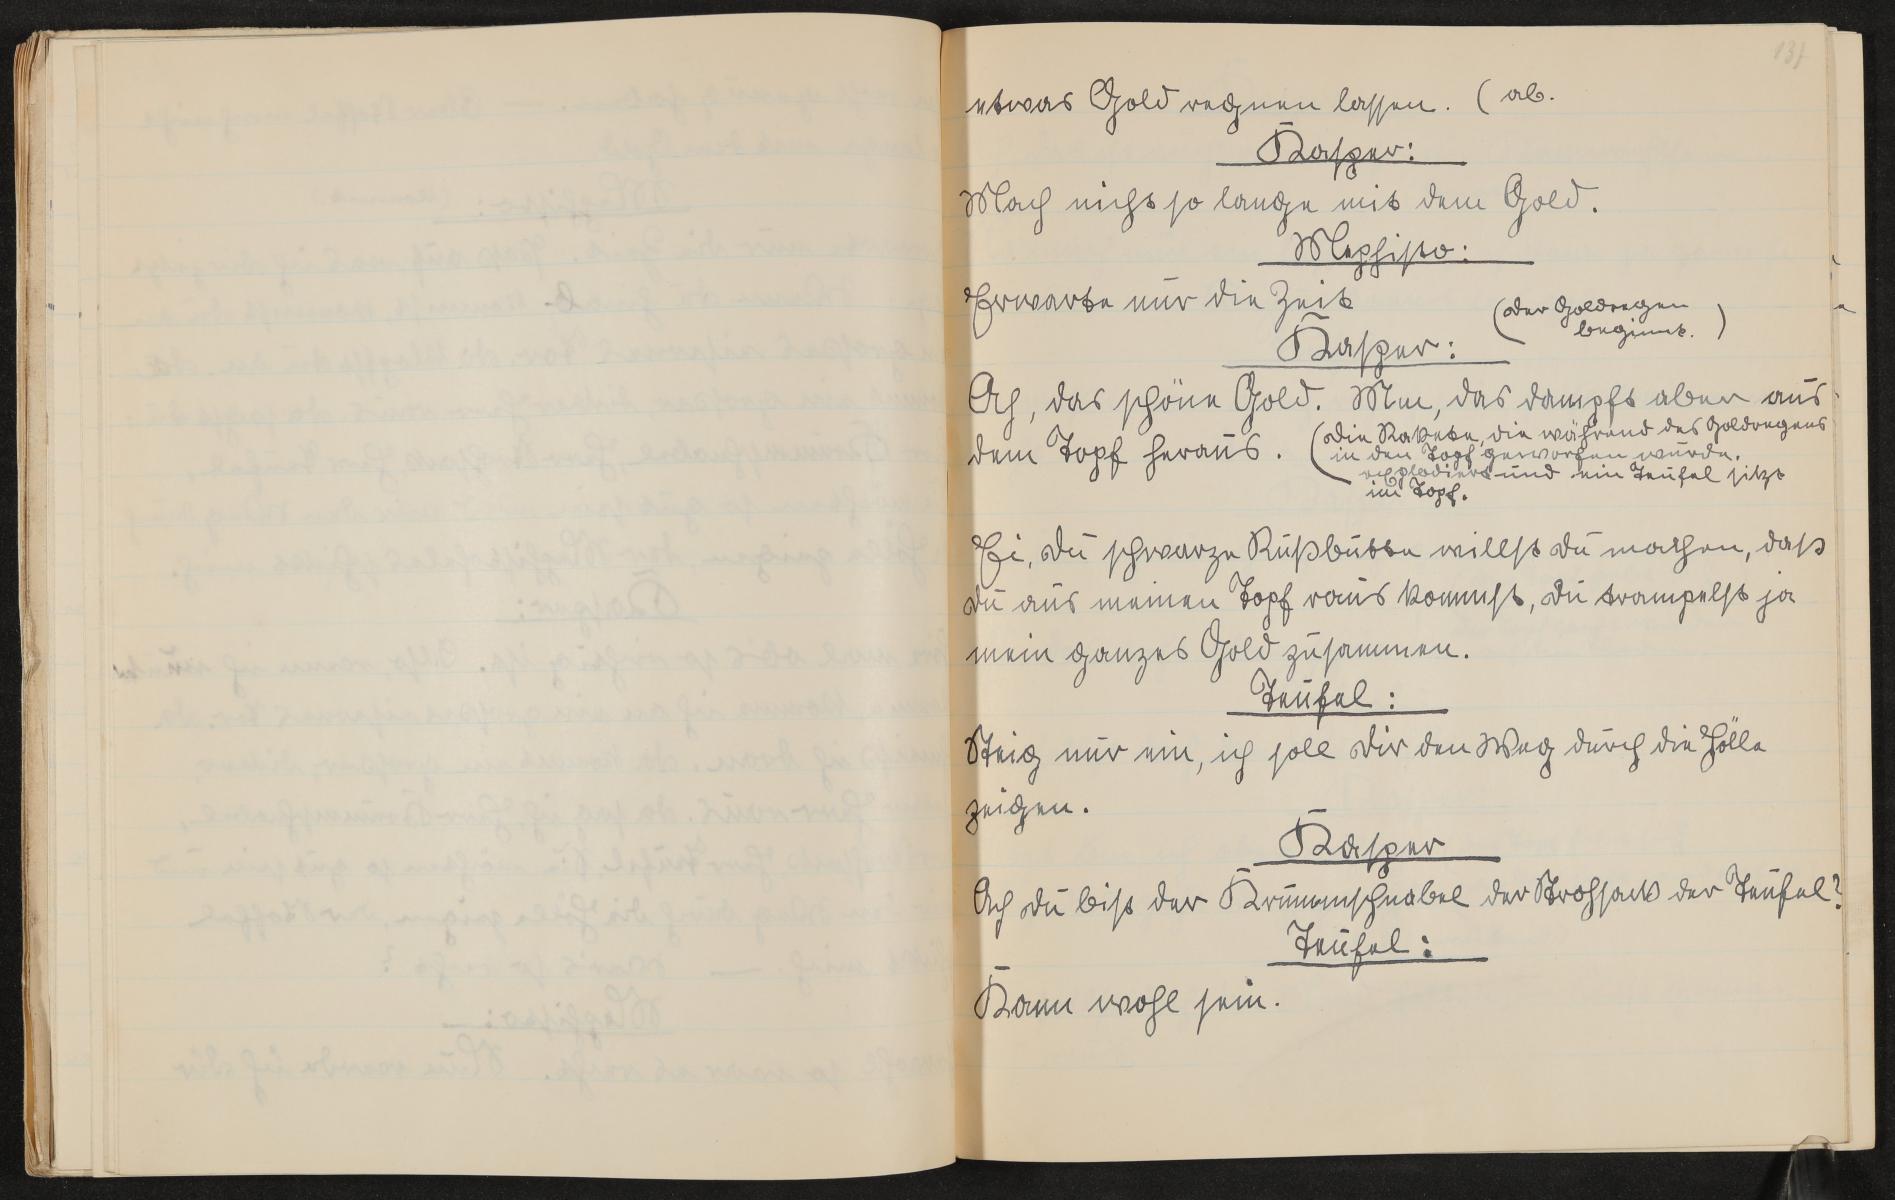 137
etwas Gold regnen lassen. (ab.
Kasper:
Mach nicht so lange mit dem Gold.
Mephisto:
Erwarte nur die Zeit
(der Goldregen
beginnt. )
Kasper:
Ach, das schöne Gold. Mm, das dampft aber aus
dem Topf heraus. (die Rakete, die während des Goldregens
in den Topf geworfen wurde.
explodiert und ein Teufel sitzt
im Topf.
Ei, du schwarze Rußbutte willst du machen, daß
du aus meinen Topf raus kommst, du trampelst ja
mein ganzes Gold zusammen.
Teufel:
Steig nur ein, ich soll dir den Weg durch die Hölle
zeigen.
Kasper
Ach du bist der Krummschnabel der Strohsack der Teufel?
Teufel:
Kann wohl sein.